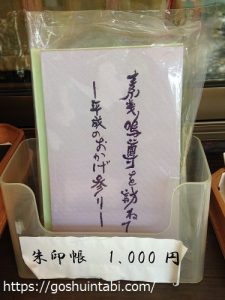 素戔嗚尊を訪ねて
ー平成のおかげ参りー
朱印帳 1,000円
https://goshuintabi.com/